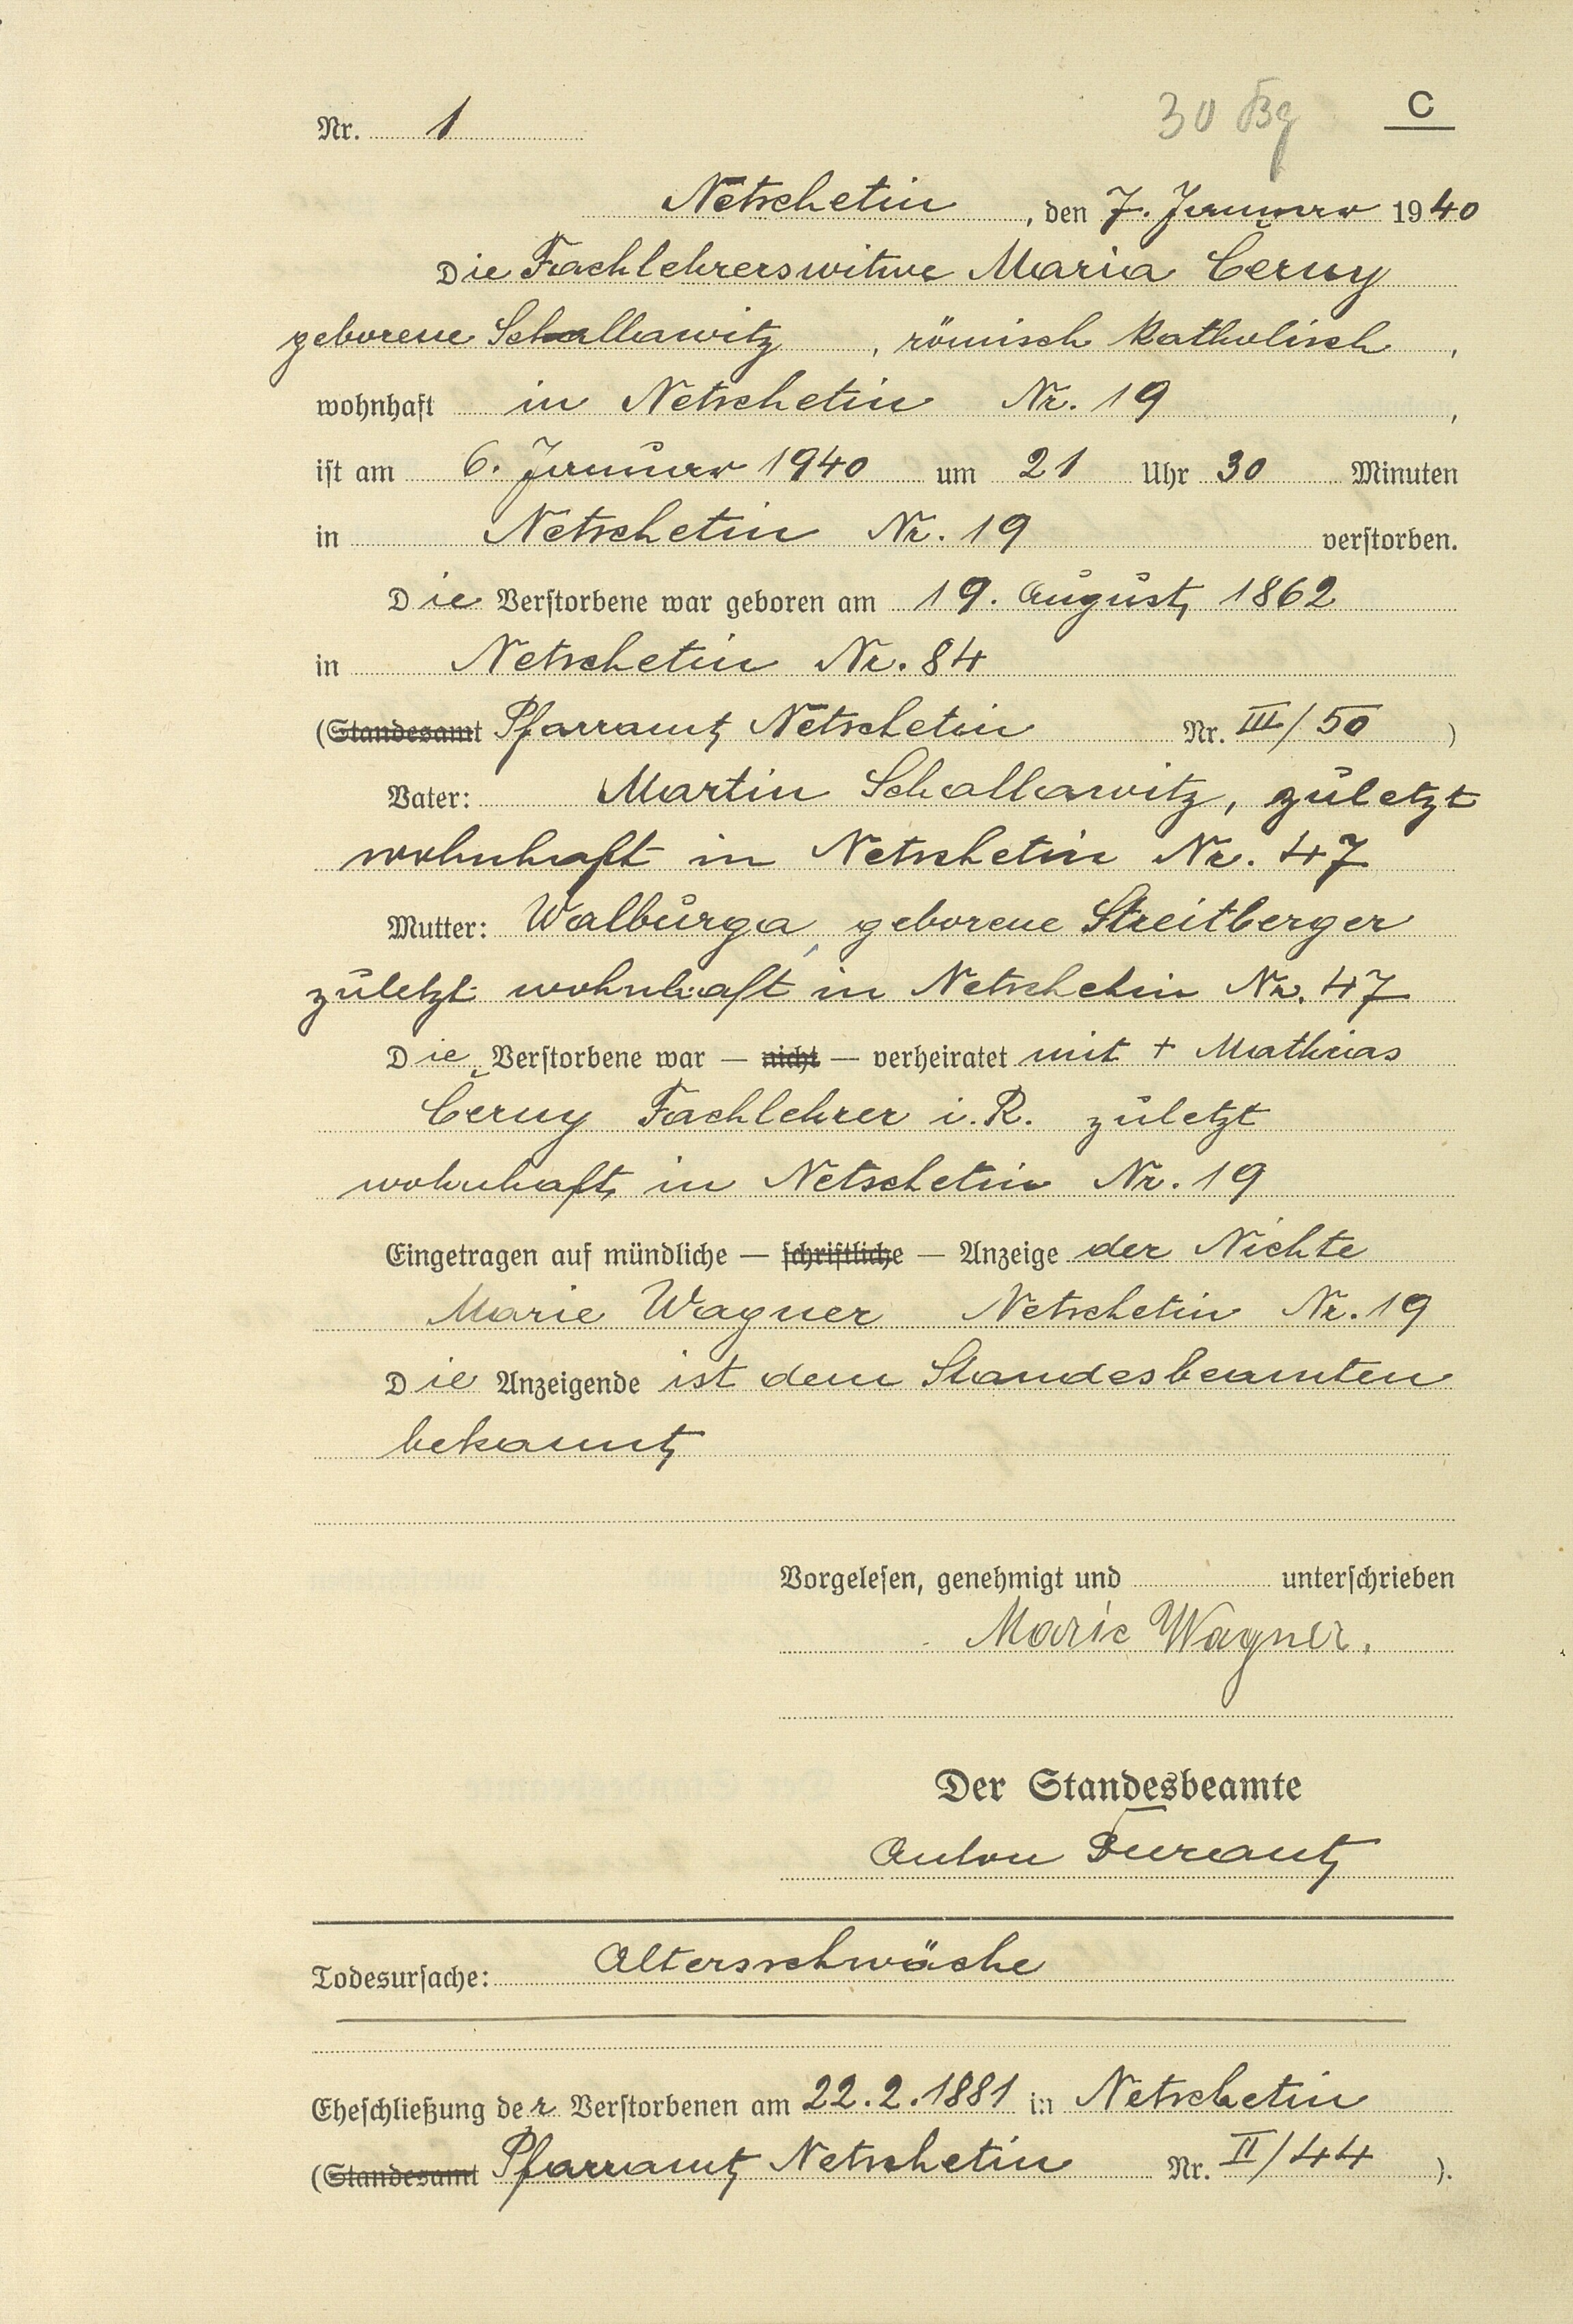 Nr. 1
30 Bg
C
Netschetin, den 7. Januar 1940
Die Fachlehrerswitwe Maria Černy
geborene Schallawitz, römisch katholisch,
wohnhaft in Netschetin Nr. 19,
ist am 6. Januar 1940 um 21 Uhr 30 Minuten
in Netschetin Nr. 19 verstorben.
Die Verstorbene war geboren am 19. August 1862
in Netschetin Nr. 84
(Standesamt Pfarramt Netschetin Nr. III/50)
Vater: Martin Schallawitz, zuletzt
wohnhaft in Netschetin Nr. 47
Mutter: Walburga, geborene Streitberger
zuletzt wohnhaft in Netschetin Nr. 47
Die Verstorbene war — nicht — verheiratet mit + Mathias
Černy Fachlehrer i. R. zuletzt
wohnhaft in Netschetin Nr. 19
Eingetragen auf mündliche — schriftliche — Anzeige der Nichte
Marie Wagner Netschetin Nr. 19
Die Anzeigende ist dem Standesbeamten
bekannt
Vorgelesen, genehmigt und unterschrieben
Marie Wagner.
Der Standesbeamte
Anton
Todesursache: Altersschwäche
Eheschließung der Verstorbenen am 22.2.1881 in Netschetin
(Standesamt Pfarramt Netschetin Nr. II/44).